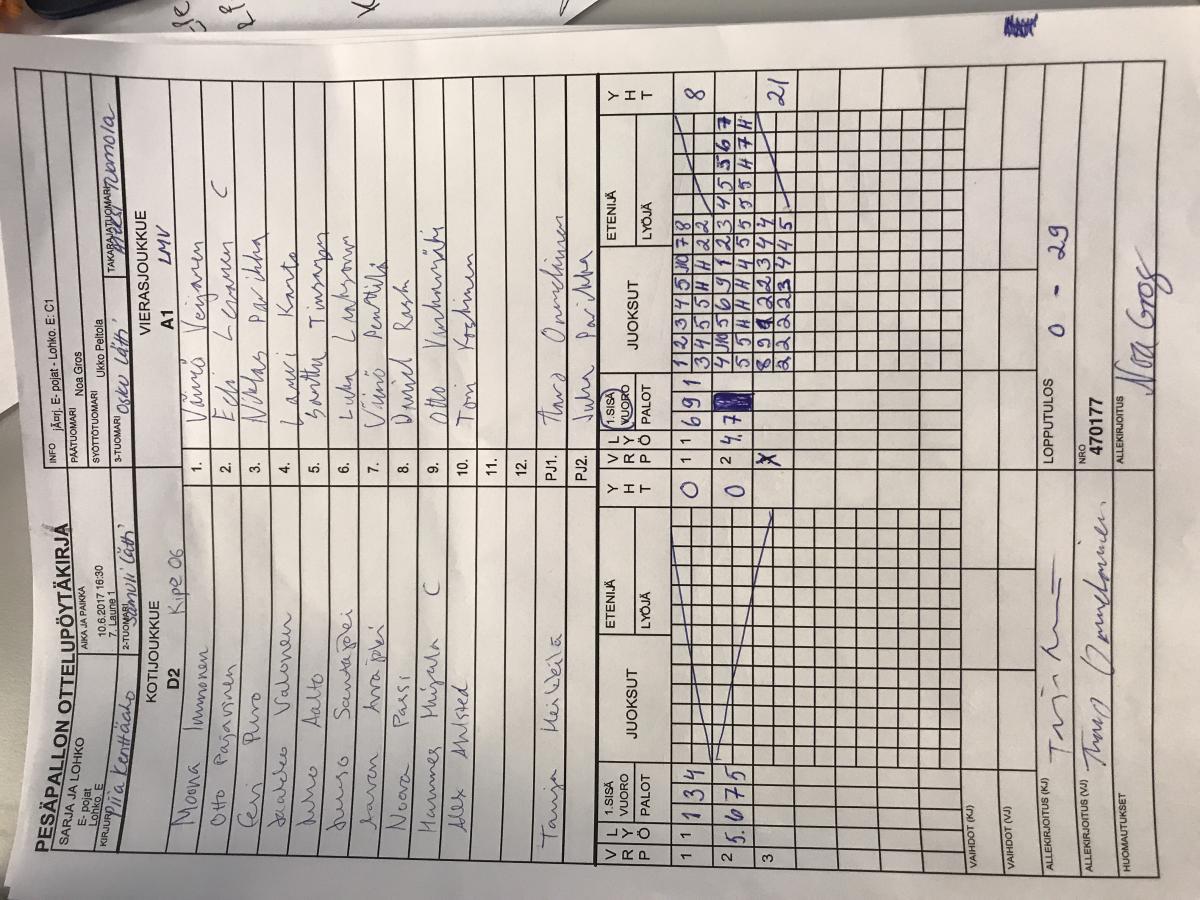 PESÄPALLON OTTELUPÖYTÄKIRJA
SARJA JA LOHKO
E- pojat
Lohko E
AIKA JA PAIKKA
10.6.2017 16:30
7. Laune 1
INFO jÄ¤rj. E- pojat - Lohko. E: C1
PÄÄTUOMARI Noa Gros
SYÖTTÖTUOMARI Ukko Peltola
KIRJURI Piia Kenttäaho
2-TUOMARI Samuli Läth'
3-TUOMARI Osku Läth'
TAKARAJATUOMARI
KOTIJOUKKUE
D2 Kipe 06
VIERASJOUKKUE
A1 LMV
Moona Immonen 1. Väinö Veijanen
Otto Pajarinen 2. Eeli Lesanen C
Eevi Puro 3. Niklas Parikka
Jaakko Valonen 4. Lauri Kanto
Juho Aalto 5. Santtu
Juuso Santajoki 6. Luka
Aaron 7. Väinö Penttilä
Noora Passi 8. Daniel Rask
Hannes C 9. Otto
Alex Ahlsted 10. Toni Koskinen
11.
12.
Tanja Heikkilä PJ1.
PJ2. Juha Parikka
V R P L Y Ö 1.SISÄ VUORO PALOT JUOKSUT ETENIJÄ LYÖJÄ Y H T
V R P L Y Ö 1.SISÄ VUORO PALOT JUOKSUT ETENIJÄ LYÖJÄ Y H T
1 1 1 3 4 0
2 5. 6 7 5 0
3
1 1 6 9 1 1 2 3 4 5 10 7 8 8
3 4 5 5 H H H 2 2
2 4. 7 4 10 5 6 9 1 2 3 4 5 5 6 7
5 5 H H H 4 5 5 5 5 H 7 H
8 9 9 2 2 3 4 4 21
2 2 2 2 3 4 4 5
VAIHDOT (KJ)
VAIHDOT (VJ)
ALLEKIRJOITUS (KJ)
LOPPUTULOS 0 - 29
ALLEKIRJOITUS (VJ)
NRO
470177
HUOMAUTUKSET
ALLEKIRJOITUS Noa Gros